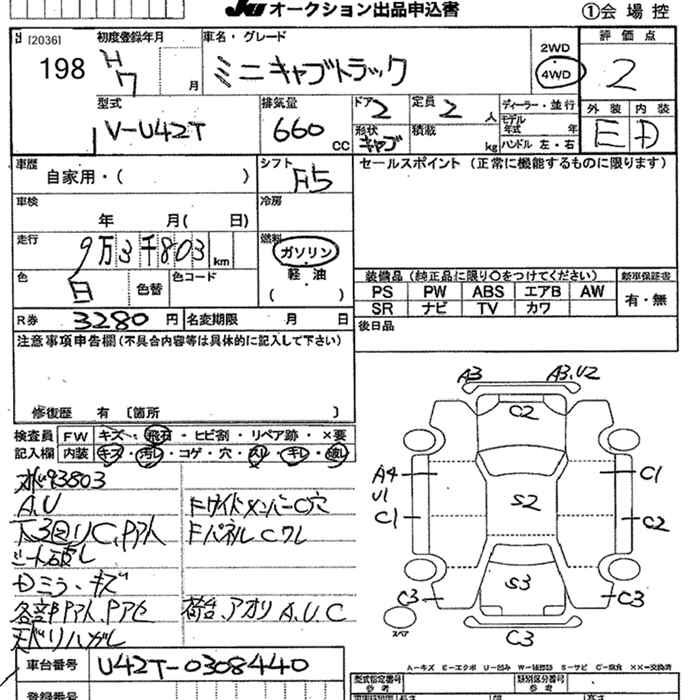 JU オークション出品申込書 ①会場控
[2036] 初度登録年月 車名・グレード 2WD 評価点
198 H7 月 ミニキャブトラック 4WD 2
型式 排気量 ドア 2 定員 2 人 ディーラー・並行 外装 内装
V-U42T 660 CC 形状 キャブ 積載 kg モデル年式 年 E D
ハンドル 左・右
車歴 自家用・( ) シフト F5 セールスポイント (正常に機能するものに限ります)
車検 年 月( 日) 冷房
走行 9万3千803 km 燃料 ガソリン
軽油
( )
色 白 色替 色コード 装備品 (純正品に限り○をつけてください) 新車保証書
PS PW ABS エアB AW 有・無
SR ナビ TV カワ
R券 3280 円 名変期限 月 日 後日品
注意事項申告欄(不具合内容等は具体的に記入して下さい)
修復歴 有 〔箇所 〕
検査員 FW キズ・飛石・ヒビ割・リペア跡・×要
記入欄 内装 キズ・汚レ・コゲ・穴・スレ・キレ・破レ
93803
A.U Fサイドメンバー C穴
下3回り C、Pアト Fパネル Cワレ
シート破レ
Dミラーキズ
各部Pアト、Pアセ 荷台、アオリ A.U.C
天バリハガレ
車台番号 U42T-0308440
登録番号
A3 A3.U2
C2
A4 C1
U1
C1 S2 C2
C3 S3 C3
スペア C3
A-キズ E-エクボ U-凹み W-補修跡 S-サビ C-腐食 ××-交換済
型式指定番号 参考 類別区分番号 参考
長さ 高さ